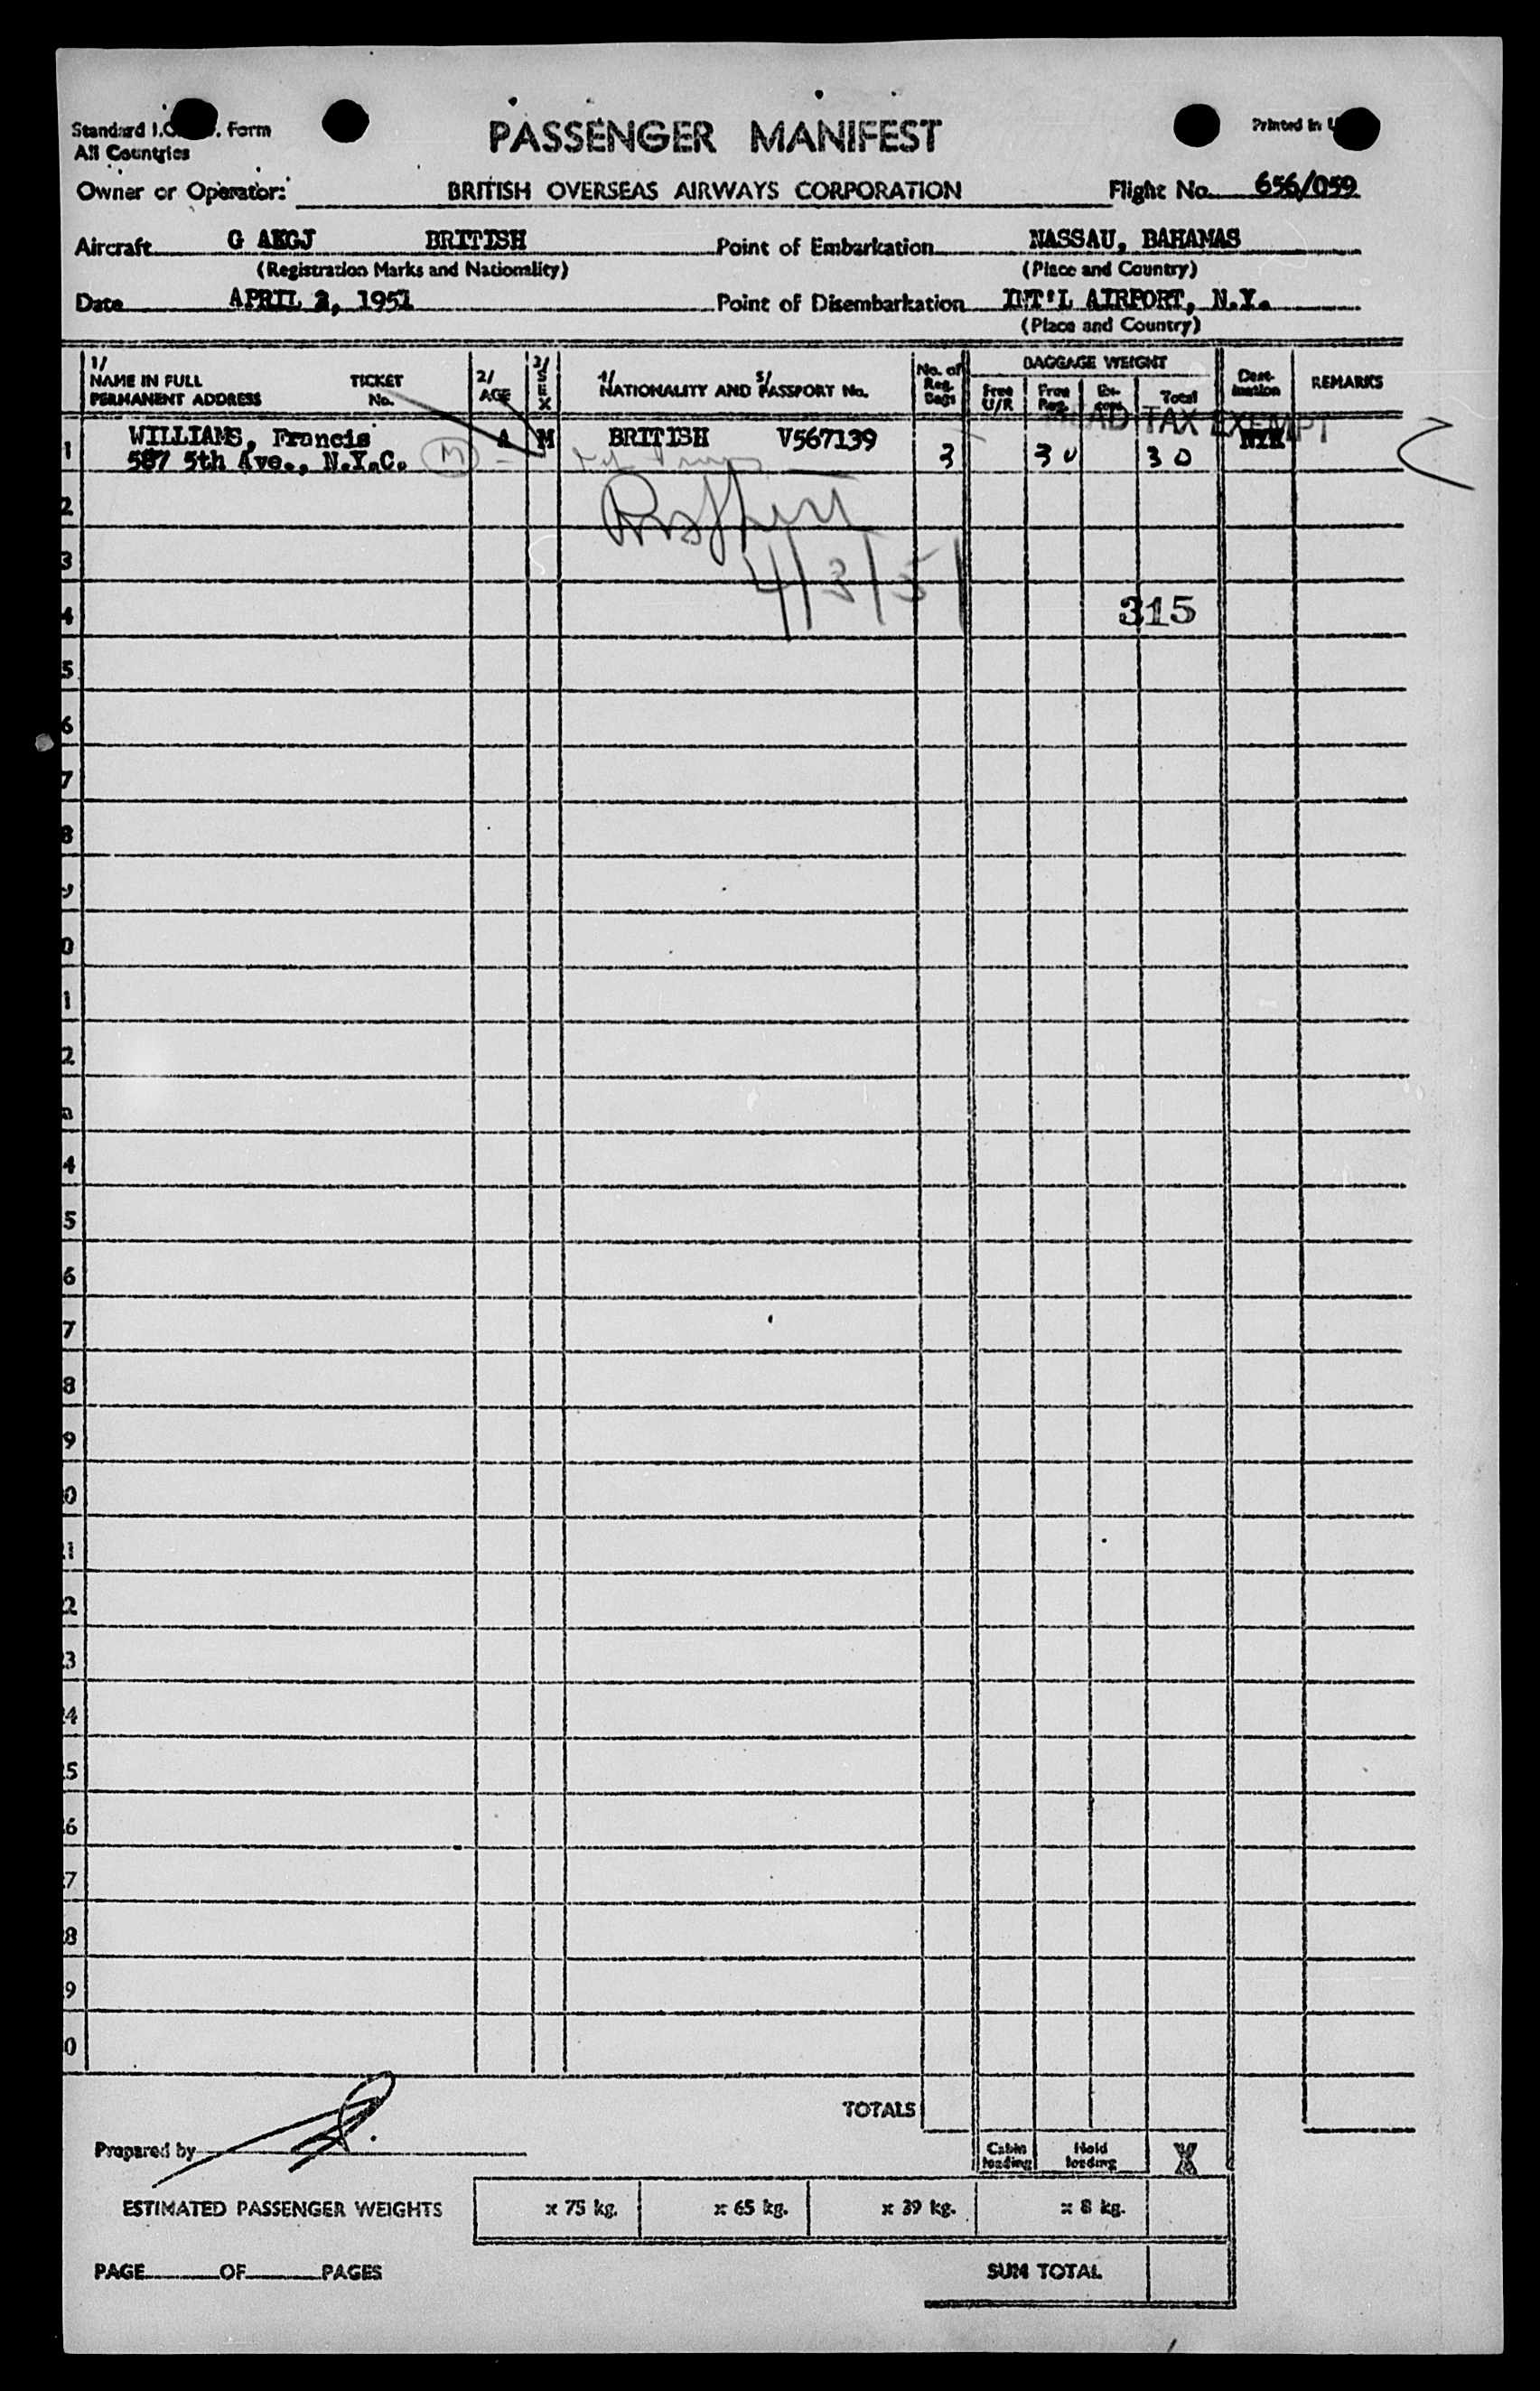 Standard I.C . Form
All Countries
PASSENGER MANIFEST
Printed in U
Owner or Operator: BRITISH OVERSEAS AIRWAYS CORPORATION Flight No. 656/059
Aircraft G AKGJ BRITISH Point of Embarkation NASSAU, BAHAMAS
(Registration Marks and Nationality) (Place and Country)
Date APRIL 2, 1951 Point of Disembarkation INT'L AIRPORT, N.Y.
(Place and Country)
1/ NAME IN FULL PERMANENT ADDRESS TICKET No. 2/ AGE 3/ SEX 4/ NATIONALITY AND 5/ PASSPORT No. No. of Reg. Bags BAGGAGE WEIGHT Free U/R Free Reg. Ex-cess Total Dest-ination REMARKS
HEAD TAX EXEMPT
1 WILLIAMS, Francis A M BRITISH V567139 NYK
587 5th Ave., N.Y.C. M 3 30 30
2
3
4/3/51
4 315
5
6
7
8
9
0
1
2
4
5
6
7
8
9
0
1
2
3
4
5
6
7
8
9
0
TOTALS
Prepared by
Cabin loading Hold loading X
ESTIMATED PASSENGER WEIGHTS x 75 kg. x 65 kg. x 39 kg. x 8 kg.
PAGE OF PAGES SUM TOTAL